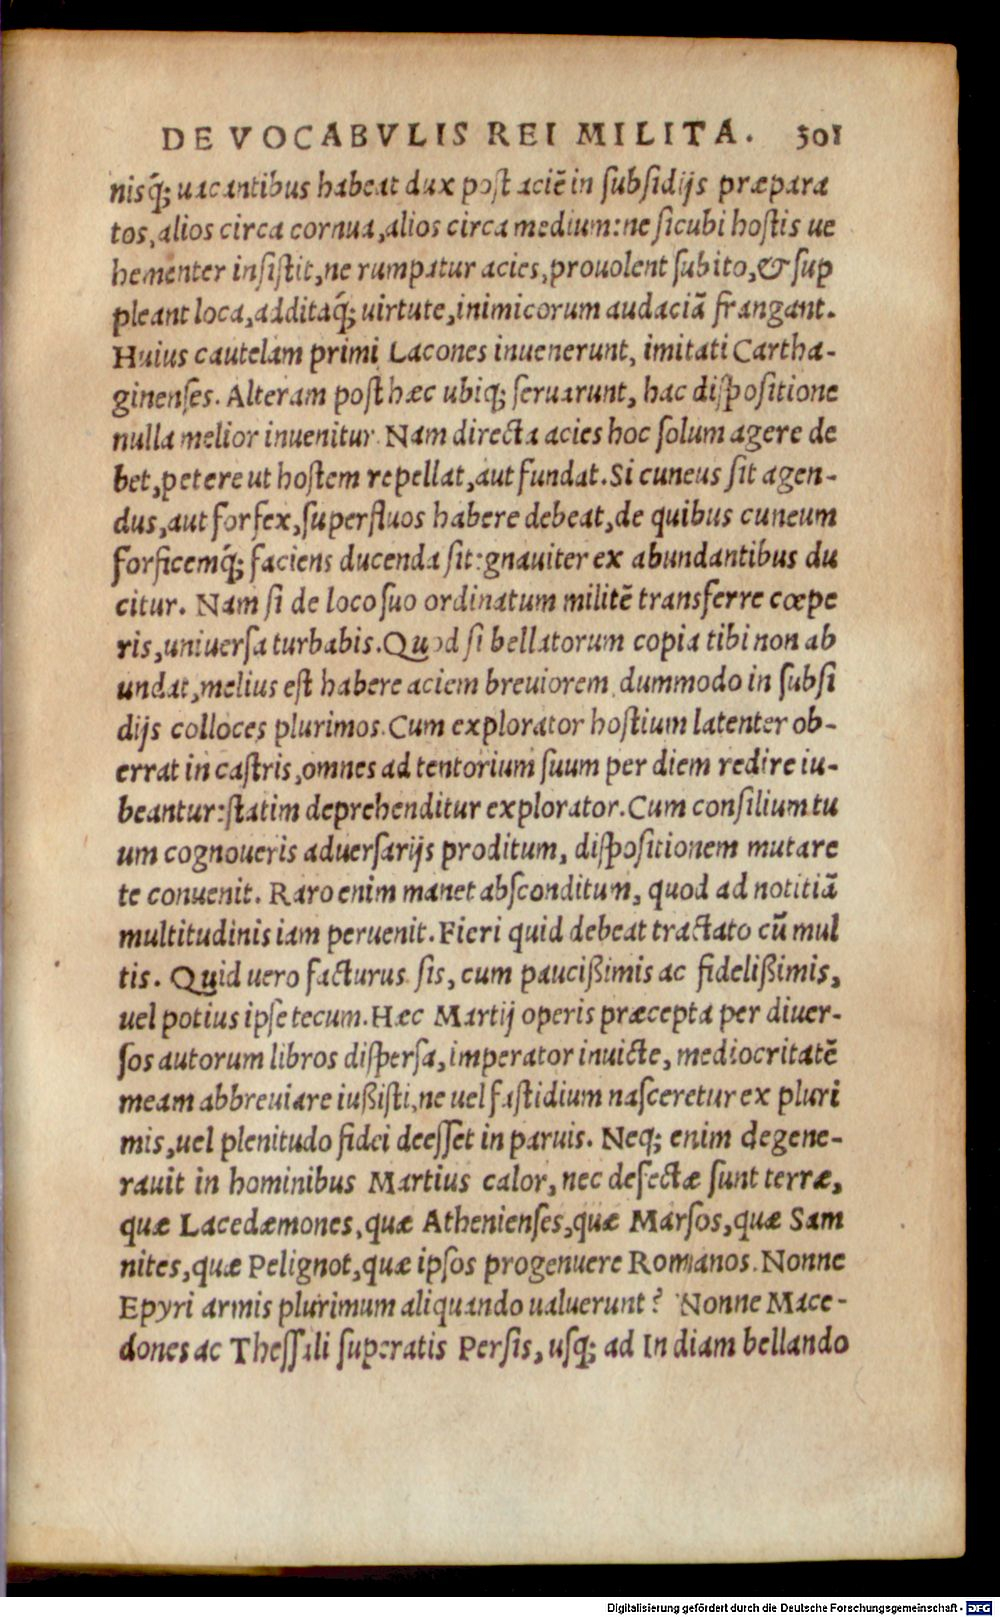 DE VOCABVLIS REI MILITA. 301
nisq́; uacantibus habeat dux post aciē in subsidijs præpara
tos, alios circa cornua, alios circa medium: ne sicubi hostis ue
hementer insistit, ne rumpatur acies, prouolent subito, & sup
pleant loca, additaq́; uirtute, inimicorum audaciā frangant.
Huius cautelam primi Lacones inuenerunt, imitati Cartha-
ginenses. Alteram post hæc ubiq; seruarunt, hac dispositione
nulla melior inuenitur. Nam directa acies hoc solum agere de
bet, petere ut hostem repellat, aut fundat. Si cuneus sit agen-
dus, aut forfex, superfluos habere debeat, de quibus cuneum
forficemq́; faciens ducenda sit: gnauiter ex abundantibus du
citur. Nam si de loco suo ordinatum militē transferre cœpe
ris, uniuersa turbabis. Quod si bellatorum copia tibi non ab
undat, melius est habere aciem breuiorem, dummodo in subsi
dijs colloces plurimos. Cum explorator hostium latenter ob-
errat in castris, omnes ad tentorium suum per diem redire iu-
beantur: statim deprehenditur explorator. Cum consilium tu
um cognoueris aduersarijs proditum, dispositionem mutare
te conuenit. Raro enim manet absconditum, quod ad notitiā
multitudinis iam peruenit. Fieri quid debeat tractato cū mul
tis. Quid uero facturus sis, cum paucißimis ac fidelißimis,
uel potius ipse tecum. Hæc Martij operis præcepta per diuer-
sos autorum libros dispersa, imperator inuicte, mediocritatē
meam abbreuiare iußisti, ne uel fastidium nasceretur ex pluri
mis, uel plenitudo fidei deesset in paruis. Neq; enim degene-
rauit in hominibus Martius calor, nec desectæ sunt terræ,
quæ Lacedæmones, quæ Athenienses, quæ Marsos, quæ Sam
nites, quæ Pelignot, quæ ipsos progenuere Romanos. Nonne
Epyri armis plurimum aliquando ualuerunt? Nonne Mace-
dones ac Thessali superatis Persis, usq; ad Indiam bellando
Digitalisierung gefördert durch die Deutsche Forschungsgemeinschaft - DFG